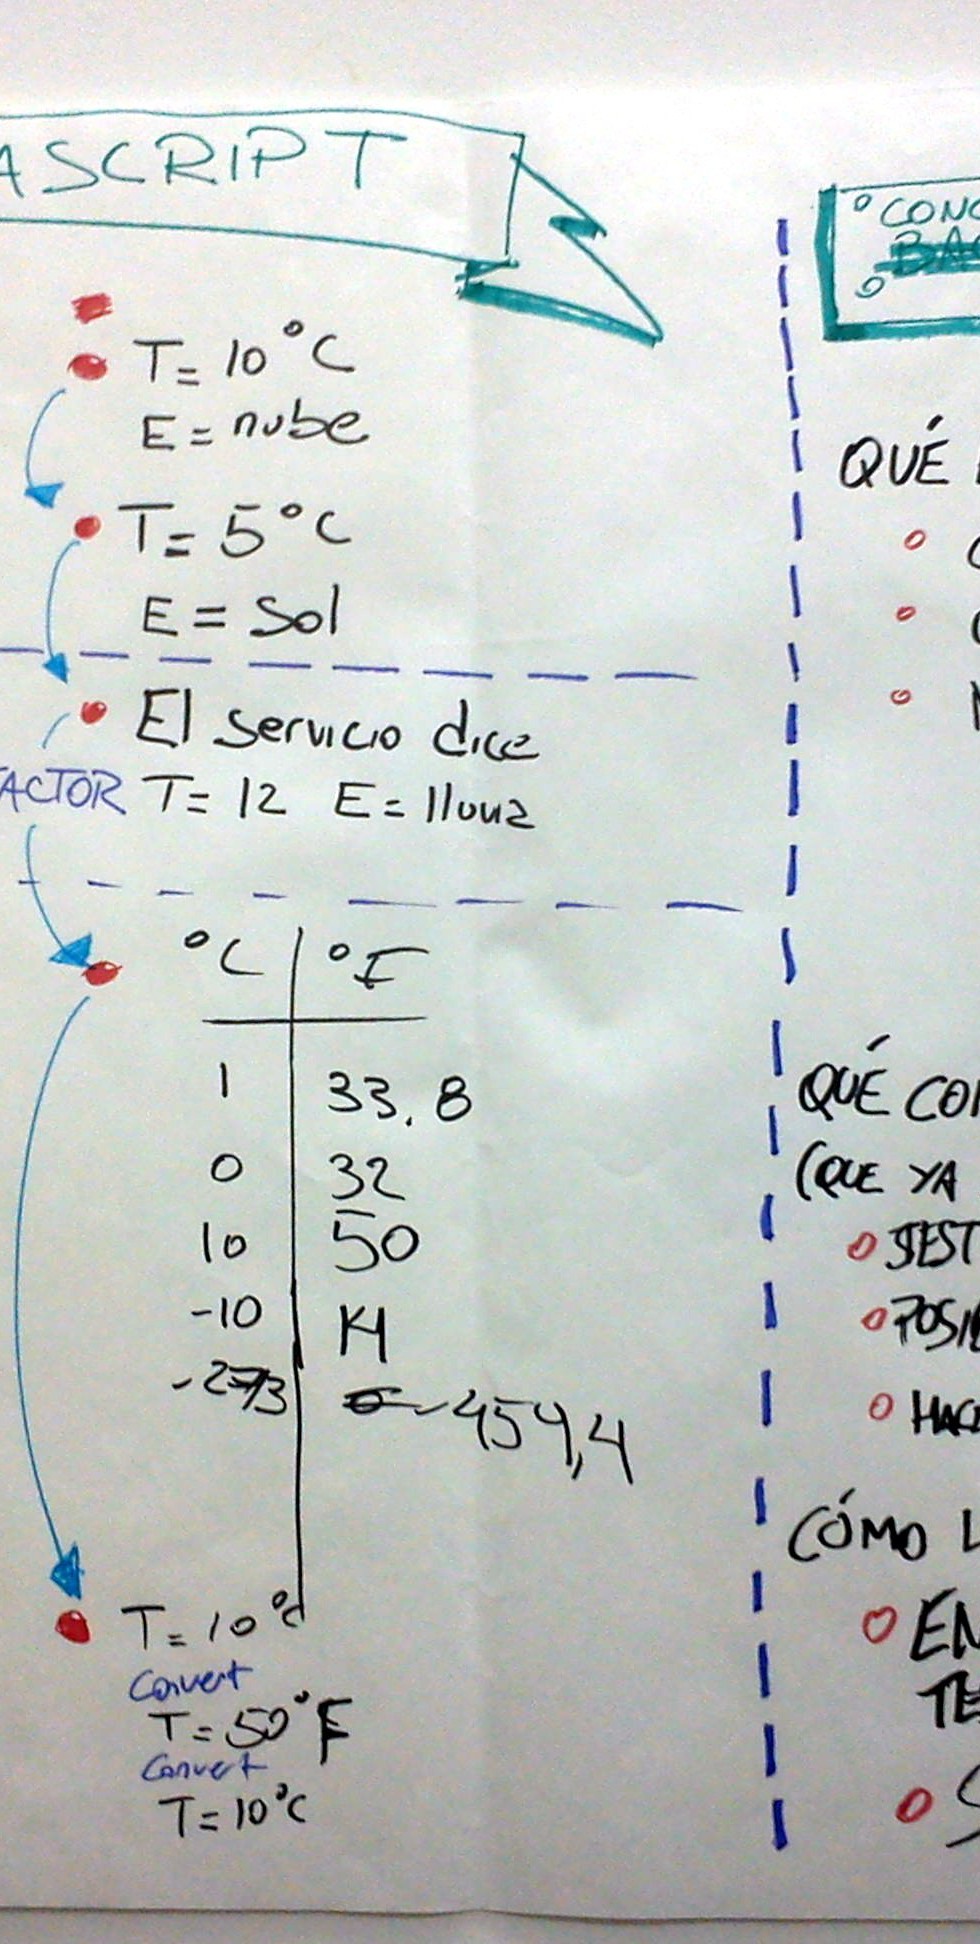 ASCRIPT
T= 10°C
E= nube
T= 5°C
E= Sol
El servicio dice
ACTOR T= 12 E= lluvia
°C °F
1 33.8
0 32
10 50
-10 14
-273 -459,4
T= 10°C
Convert
T= 50°F
Convert
T= 10°C
QUÉ
QUÉ CO
(QUE YA
CÓMO L
EN
TE